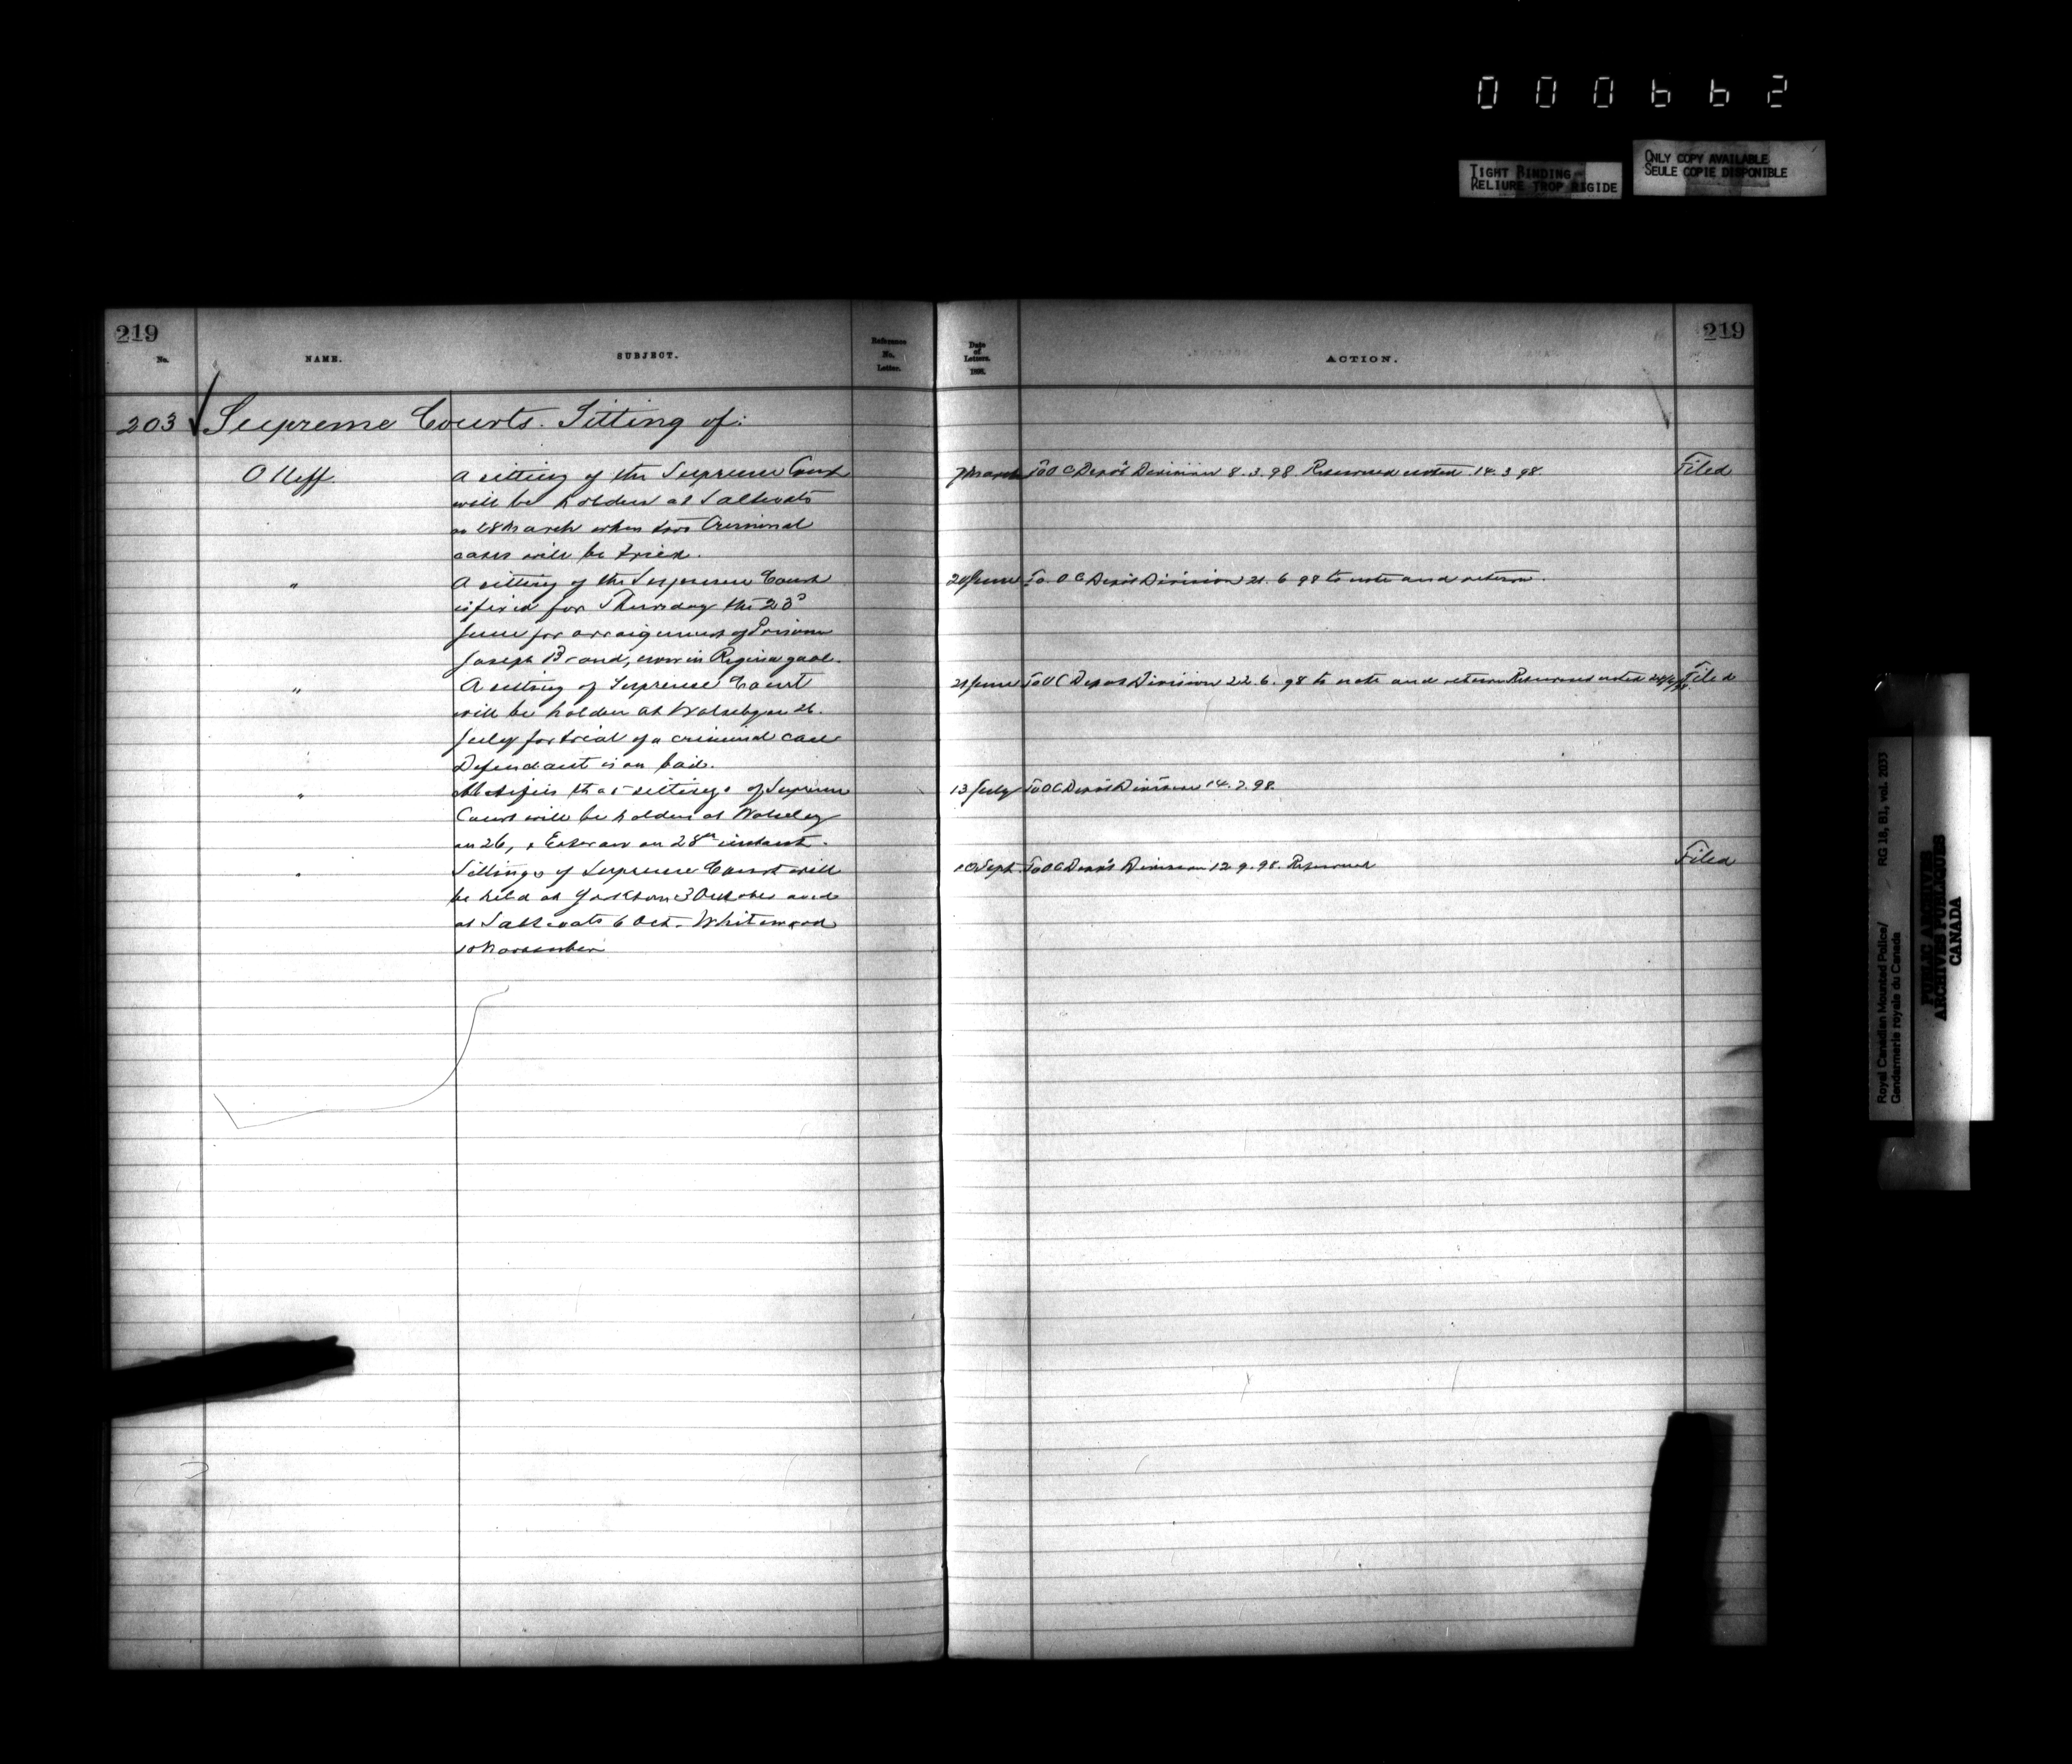 000662
TIGHT BINDING
RELIURE TROP RIGIDE
ONLY COPY AVAILABLE
SEULE COPIE DISPONIBLE
219
No.
NAME.
SUBJECT.
Reference
No.
Letter.
Date
of
Letters.
189
ACTION.
219
203 Supreme Courts. Sitting of:
O Neff.
A sitting of the Supreme Court
will be holden at Saltcoats
on 28 March when two Criminal
cases will be tried.
7 March To O C Depot Division 8.3.98. Returned noted 14.3.98. Filed
" A sitting of the Supreme Court
is fixed for Thursday the 23d
June for arraignment of Prisoner
Joseph Brand, now in Regina gaol.
20 June To O C Depot Division 21.6.98 to note and return.
" A sitting of Supreme Court
will be holden at Wolseley on 26.
July for trial of a criminal case
Defendant is on bail.
21 June To O C Depot Division 22.6.98 to note and return Returned noted Filed
" Notifies that sittings of Supreme
Court will be holden at Wolseley
on 26, & on 28th instant.
13 July To O C Depot Division 14.7.98.
" Sittings of Supreme Court will
be held at Yorkton 3 October and
at Saltcoats 6 Oct. Whitewood
10 November
10 Sept. To O C Depot Division 12.9.98. Returned Filed
Royal Canadian Mounted Police/
Gendarmerie royale du Canada
RG 18, B1, vol. 2033
PUBLIC ARCHIVES
ARCHIVES PUBLIQUES
CANADA